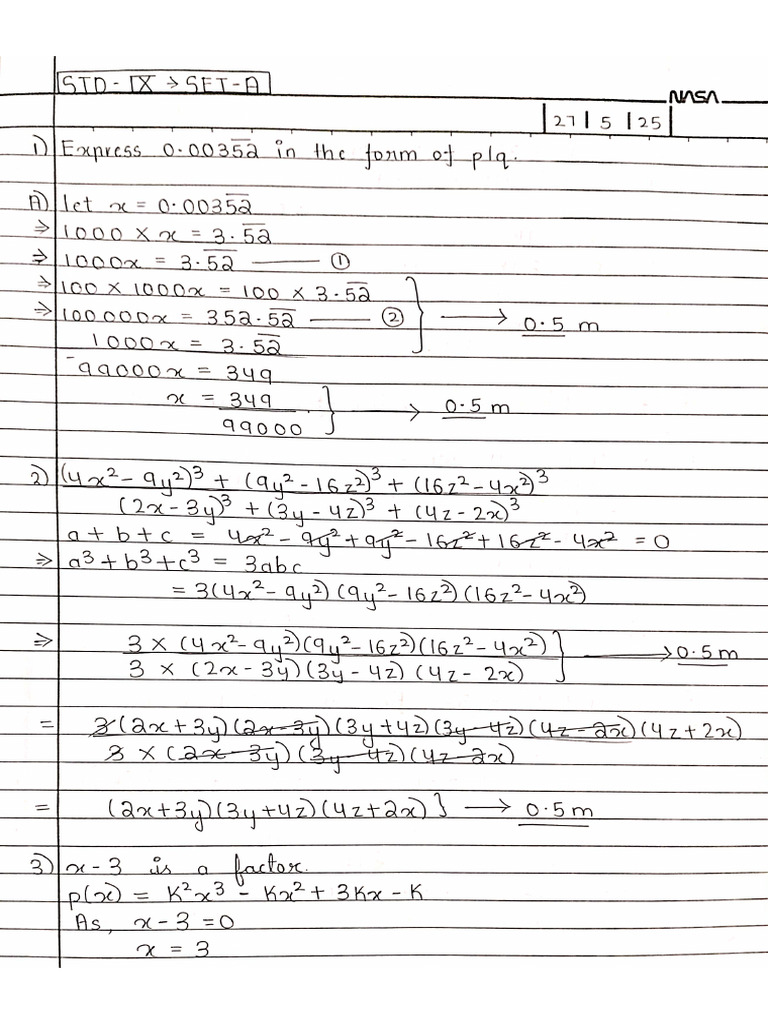 STD - IX → SET-A
NASA
27 | 5 | 25
1) Express 0.0035̅2̅ in the form of p/q.
A) let x = 0.0035̅2̅
⇒ 1000 × x = 3.5̅2̅
⇒ 1000x = 3.5̅2̅ —— ①
⇒ 100 × 1000x = 100 × 3.5̅2̅
⇒ 100000x = 352.5̅2̅ —— ② } → 0.5 m
1000x = 3.5̅2̅
-99000x = 349
x = 349 } → 0.5 m
99000
2) (4x² - 9y²)³ + (9y² - 16z²)³ + (16z² - 4x²)³
(2x - 3y)³ + (3y - 4z)³ + (4z - 2x)³
a + b + c = 4x² - 9y² + 9y² - 16z² + 16z² - 4x² = 0
⇒ a³ + b³ + c³ = 3abc
= 3(4x² - 9y²)(9y² - 16z²)(16z² - 4x²)
⇒ 3 × (4x² - 9y²)(9y² - 16z²)(16z² - 4x²) } → 0.5 m
3 × (2x - 3y)(3y - 4z)(4z - 2x)
= 3(2x + 3y)(2x - 3y)(3y + 4z)(3y - 4z)(4z - 2x)(4z + 2x)
3 × (2x - 3y)(3y - 4z)(4z - 2x)
= (2x + 3y)(3y + 4z)(4z + 2x) } → 0.5 m
3) x - 3 is a factor.
p(x) = K²x³ - Kx² + 3Kx - K
As, x - 3 = 0
x = 3